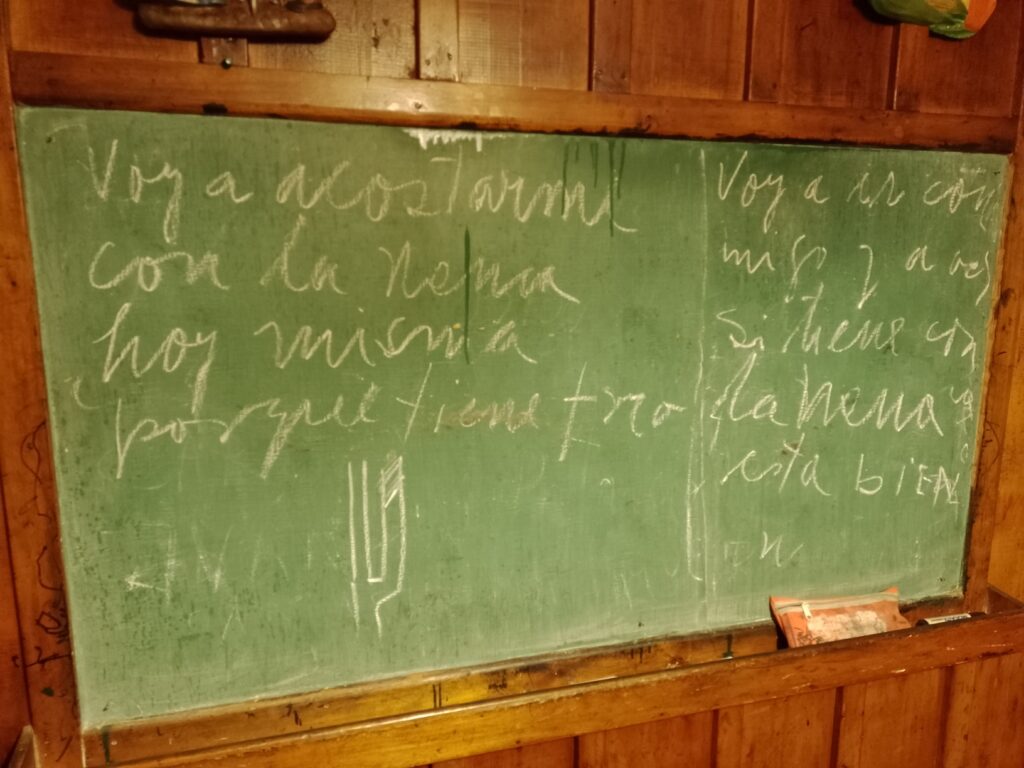 Voy a acostarme
con la nena
hoy misma
porque tiene frio
Voy a ir con
migo y a
si tiene con
la nena
esta bien